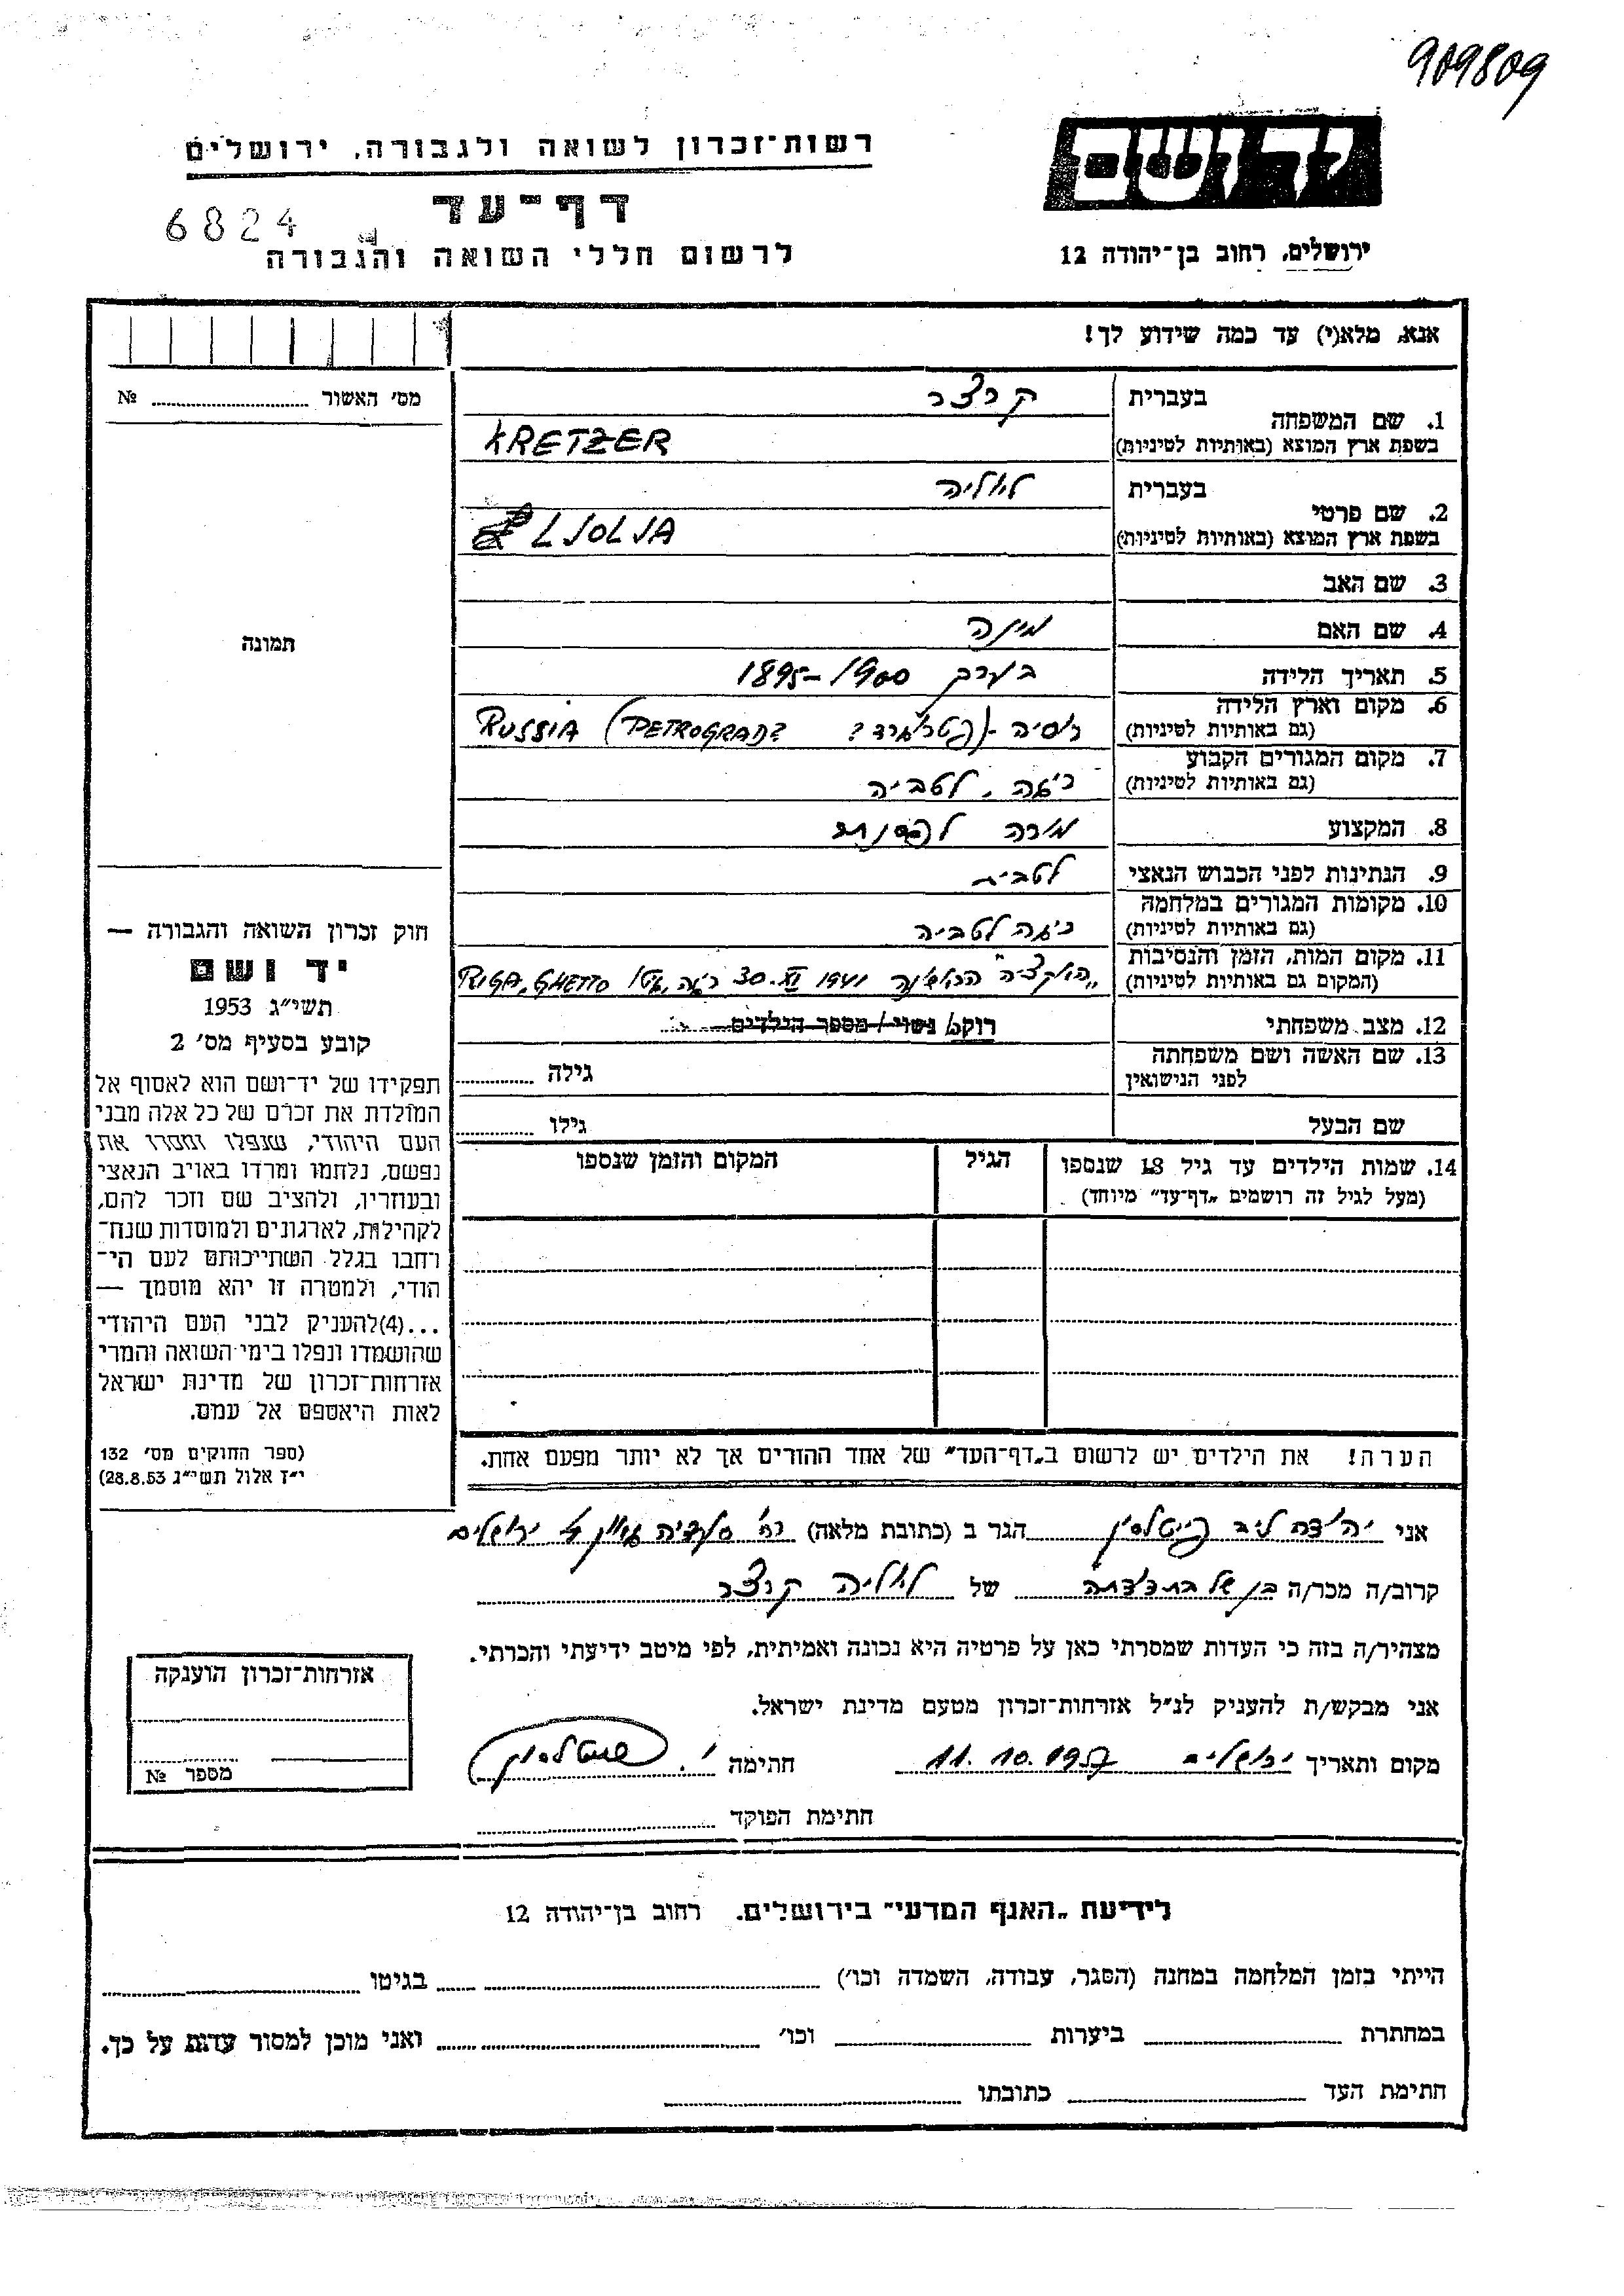 909809
רשות־זכרון לשואה ולגבורה, ירושלים
יד ושם
דף־עד
6824
לרשום חללי השואה והגבורה
ירושלים, רחוב בן־יהודה 12
אנא, מלא(י) עד כמה שידוע לך!
מס' האשור № 
בעברית קרצר
1. שם המשפחה
בשפת ארץ המוצא (באותיות לטיניות) KRETZER
בעברית לוליה
2. שם פרטי
בשפת ארץ המוצא (באותיות לטיניות) LJOLJA
3. שם האב
4. שם האם מינה
תמונה
5. תאריך הלידה בערך 1895-1900
6. מקום וארץ הלידה
(גם באותיות לטיניות) רוסיה - (פטרוגרד? RUSSIA (PETROGRAD?
7. מקום המגורים הקבוע
(גם באותיות לטיניות) ריגה, לטביה
8. המקצוע מורה לפסנתר
9. הנתינות לפני הכבוש הנאצי לטבית
10. מקומות המגורים במלחמה
(גם באותיות לטיניות) ריגה לטביה
11. מקום המות, הזמן והנסיבות
(המקום גם באותיות לטיניות) "האקציה" הראשונה 30.XI 1941 ריגה, גטו RIGA, GHETTO
12. מצב משפחתי רוק/ נשוי / מספר הילדים
13. שם האשה ושם משפחתה
לפני הנישואין גילה
שם הבעל גילו
14. שמות הילדים עד גיל 18 שנספו הגיל המקום והזמן שנספו
(מעל לגיל זה רושמים "דף־עד" מיוחד)
חוק זכרון השואה והגבורה —
יד ושם
תשי"ג 1953
קובע בסעיף מס' 2
תפקידו של יד־ושם הוא לאסוף אל
המולדת את זכרם של כל אלה מבני
העם היהודי, שנפלו ומסרו את
נפשם, נלחמו ומרדו באויב הנאצי
ובעוזריו, ולהציב שם וזכר להם,
לקהילות, לארגונים ולמוסדות שנח־
רחבו בגלל השתייכותם לעם הי־
הודי, ולמטרה זו יהא מוסמך —
...(4)להעניק לבני העם היהודי
שהושמדו ונפלו בימי השואה והמרי
אזרחות־זכרון של מדינת ישראל
לאות היאספם אל עמם.
(ספר החוקים מס' 132
י"ז אלול תשי"ג 28.8.53)
הערה! את הילדים יש לרשום ב"דף־העד" של אחד ההורים אך לא יותר מפעם אחת.
אני יהודה ליב הגר ב (כתובת מלאה) רח' סעדיה גאון ירושלים
קרוב/ה מכר/ה בן של בת דודתה של לוליה קרצר
מצהיר/ה בזה כי העדות שמסרתי כאן על פרטיה היא נכונה ואמיתית, לפי מיטב ידיעתי והכרתי.
אני מבקש/ת להעניק לנ"ל אזרחות־זכרון מטעם מדינת ישראל.
מקום ותאריך ירושלים 11.10.1957 חתימה י.
חתימת הפוקד
אזרחות־זכרון הוענקה
מספר №
לידיעת "האגף המדעי" בירושלים. רחוב בן־יהודה 12
הייתי בזמן המלחמה במחנה (הסגר, עבודה, השמדה וכו') בגיטו
במחתרת ביערות וכו' ואני מוכן למסור עדות על כך.
חתימת העד כתובתו